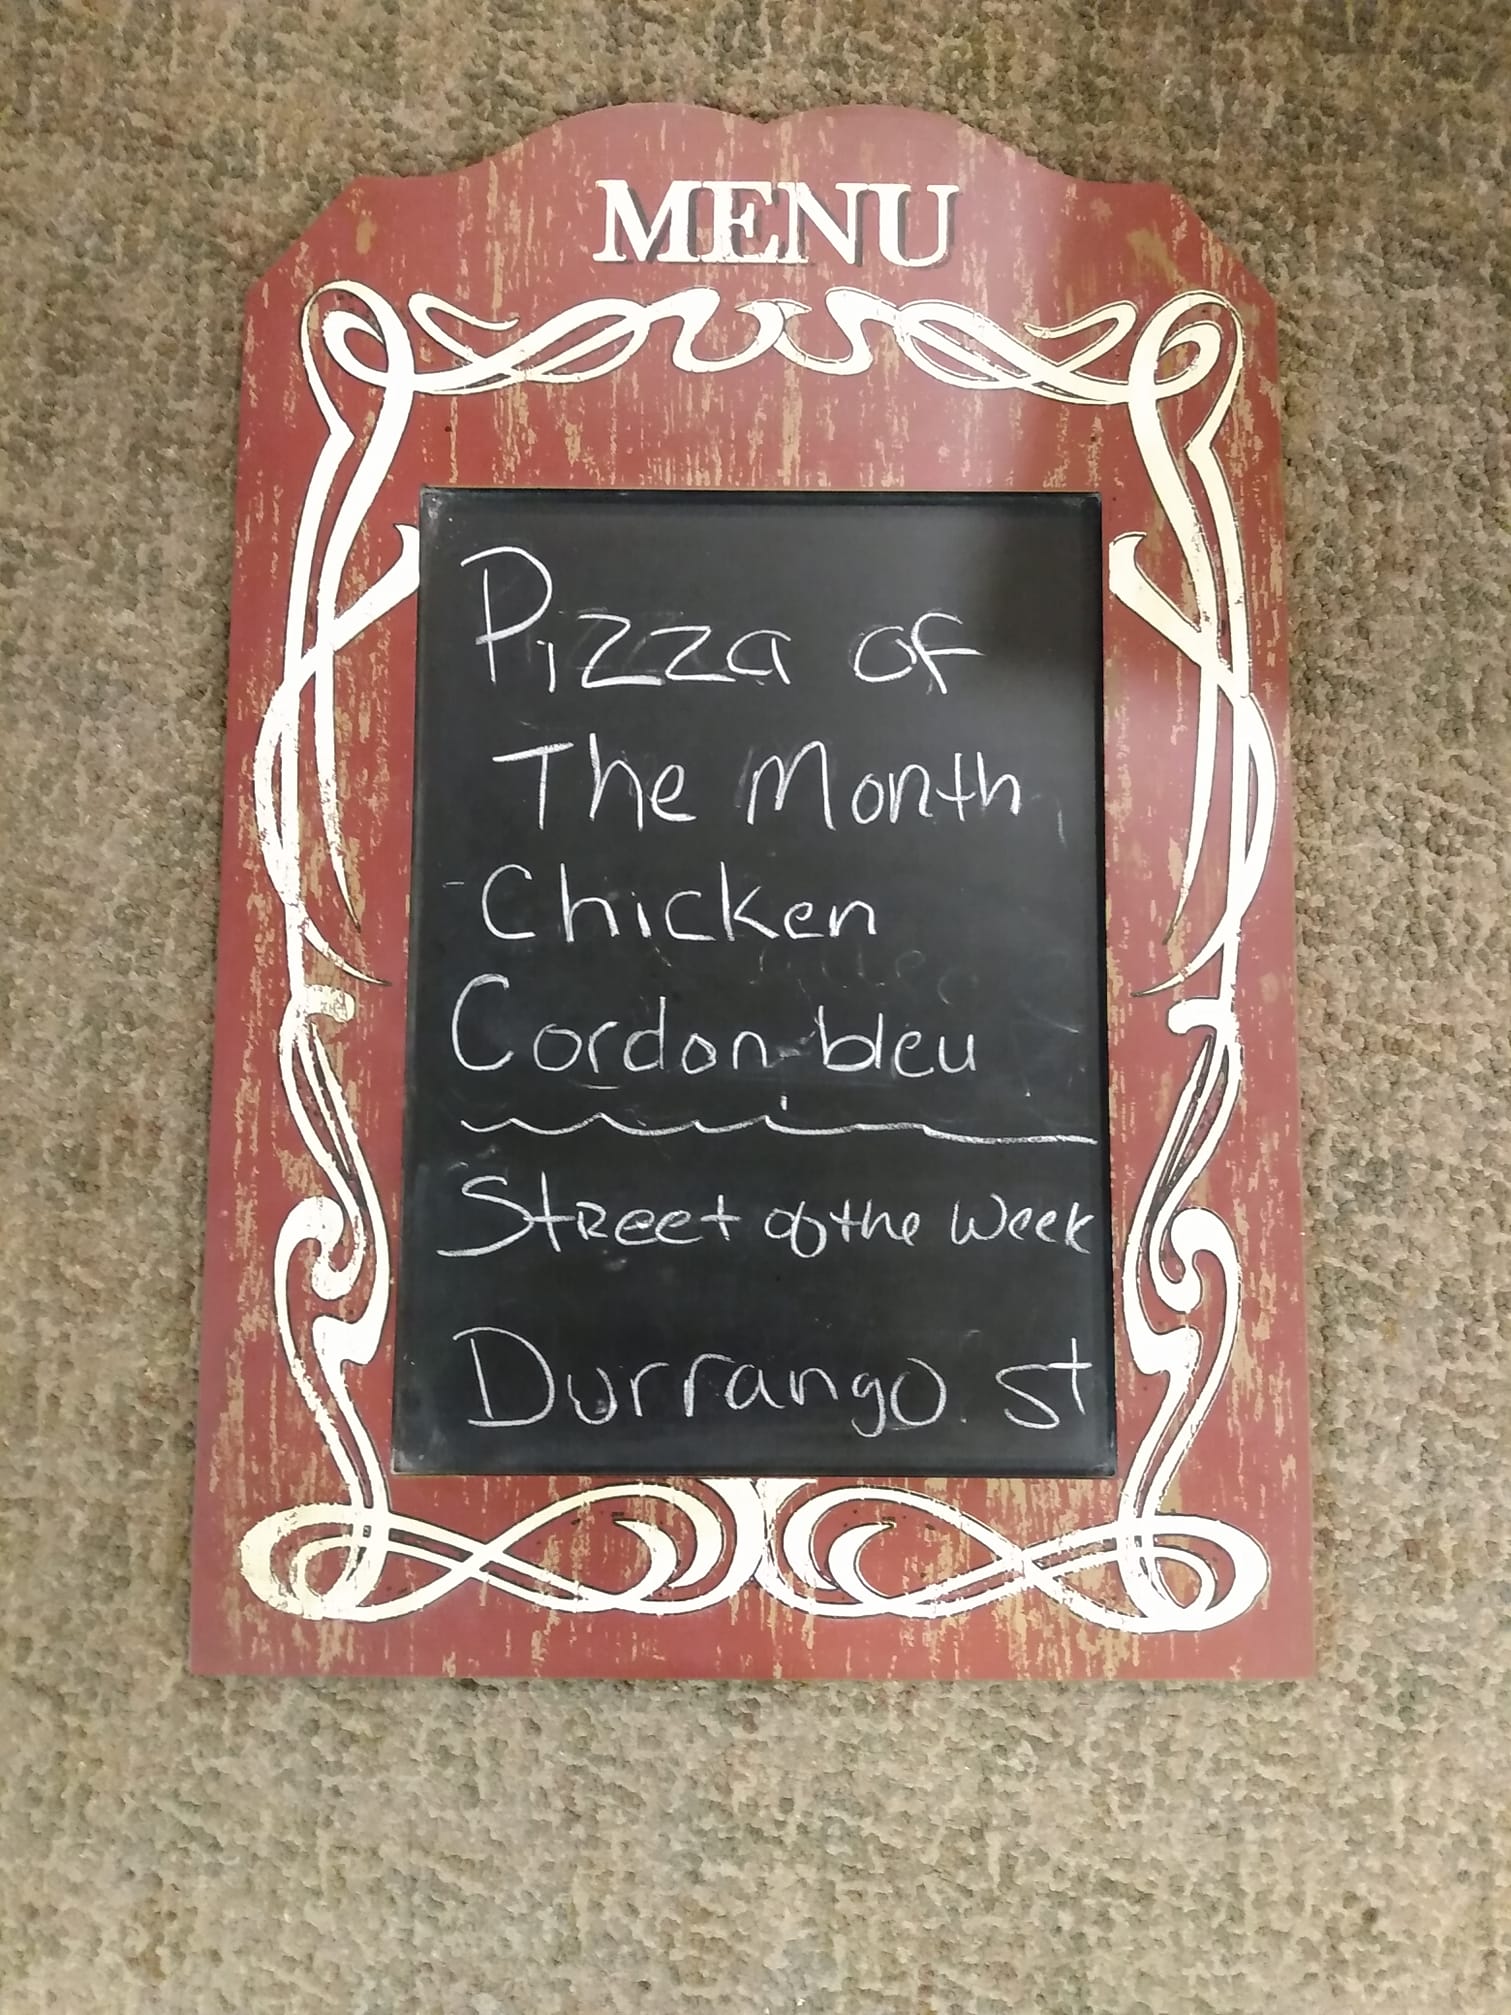 MENU
Pizza of
The Month
- Chicken
Cordon-bleu
Street of the Week
Durrango st